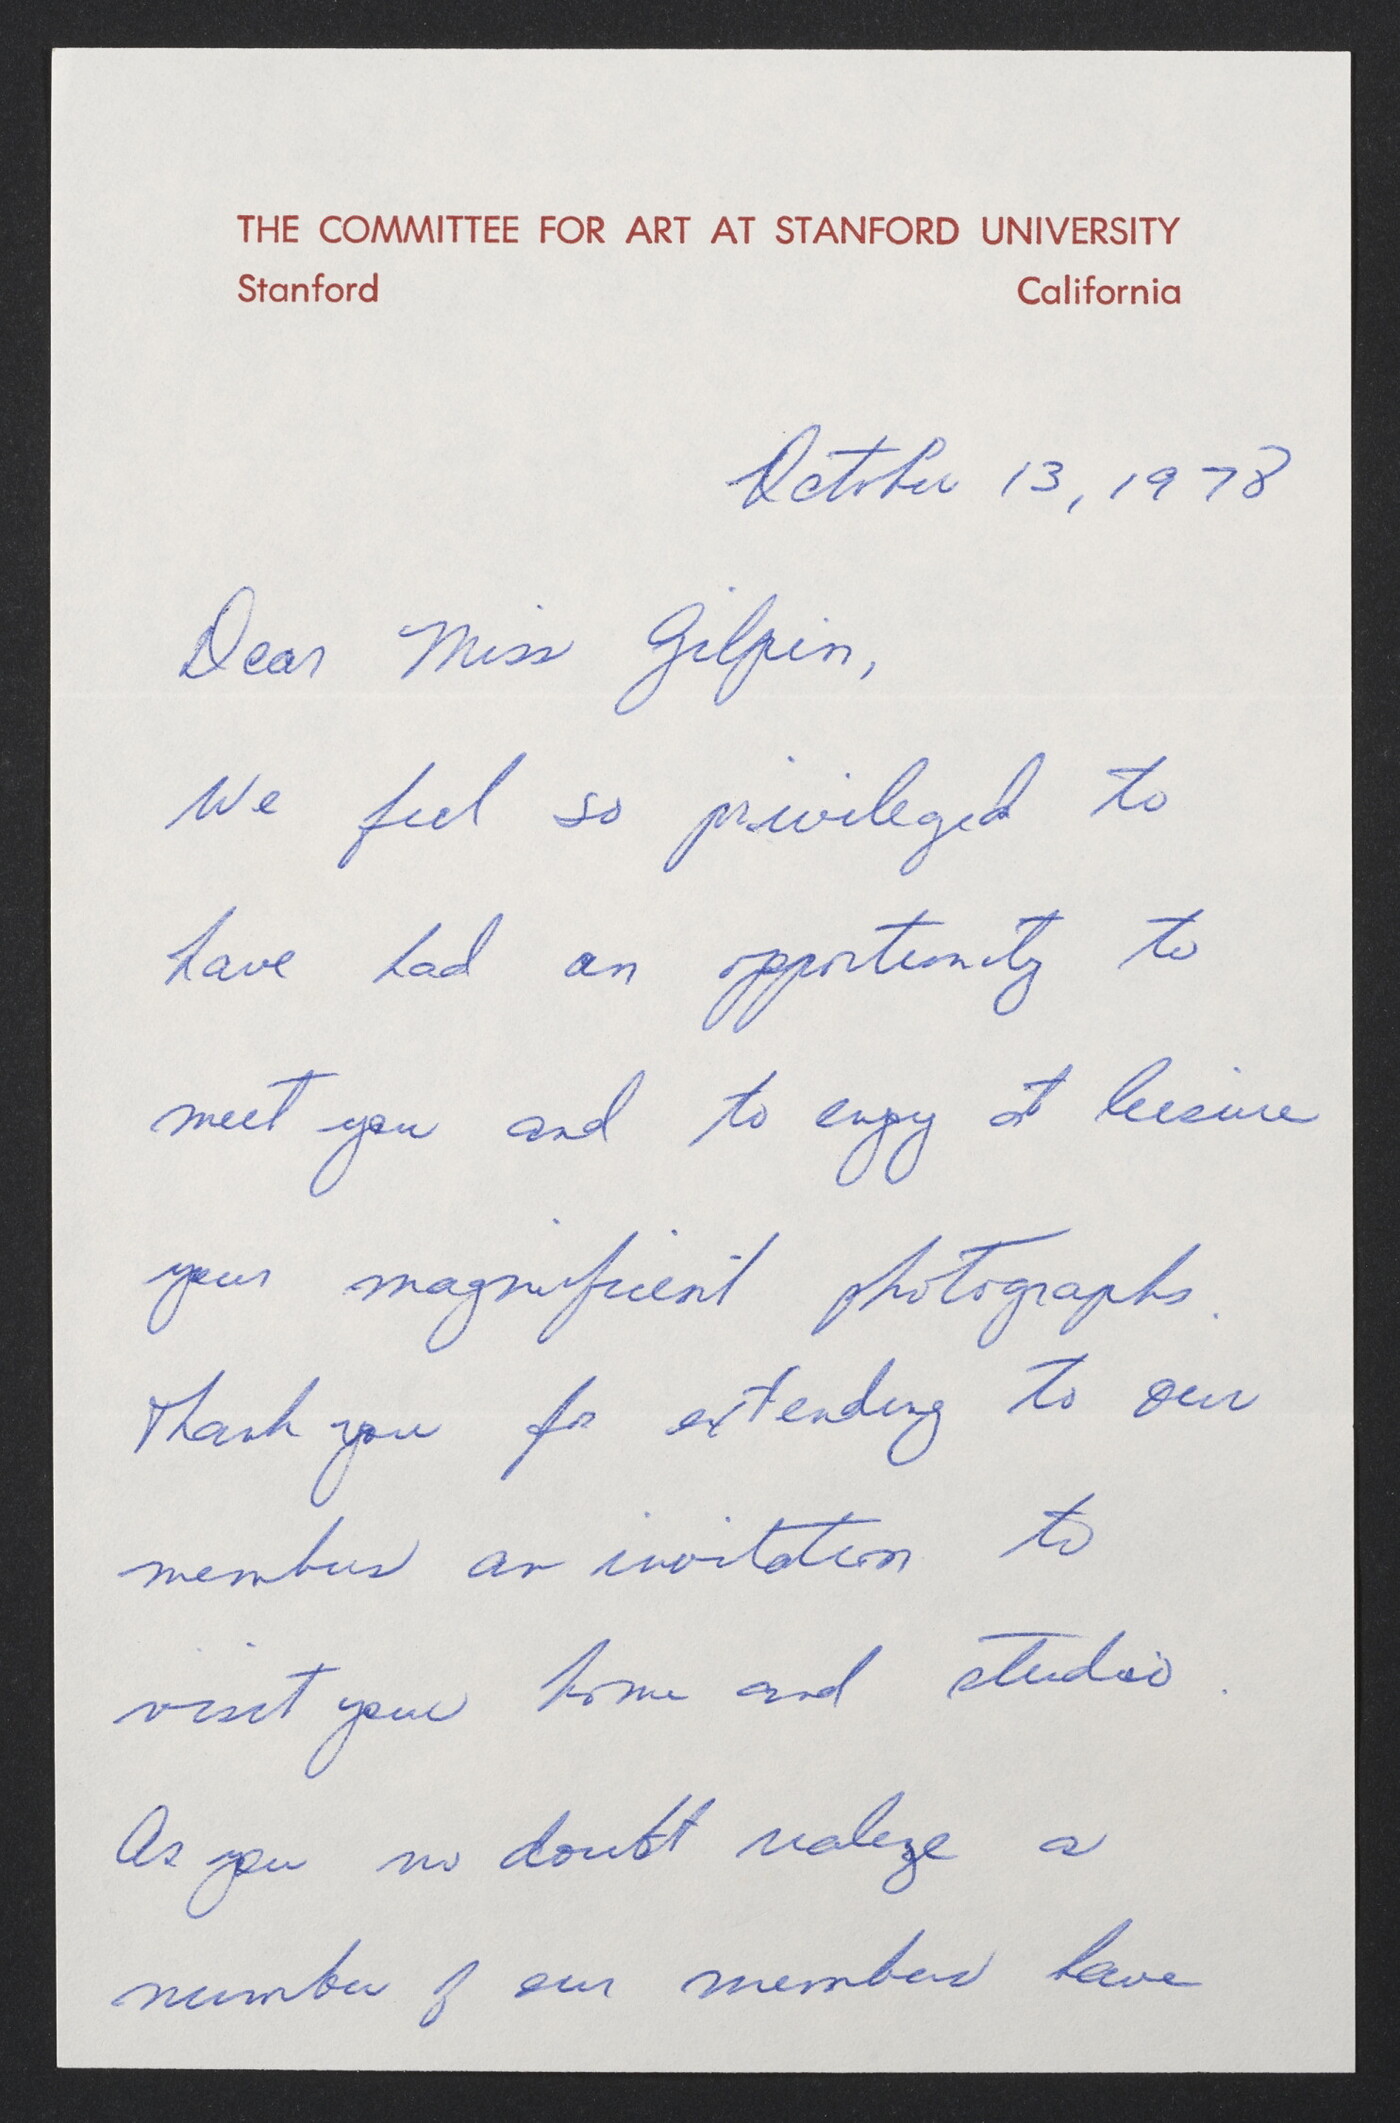 THE COMMITTEE FOR ART AT STANFORD UNIVERSITY
Stanford California
October 13, 1978
Dear Miss Gilpin,
We feel so privileged to
have had an opportunity to
meet you and to enjoy at leisure
your magnificent photographs.
Thank you for extending to our
members an invitation to
visit your home and studio.
As you no doubt realize a
number of our members have